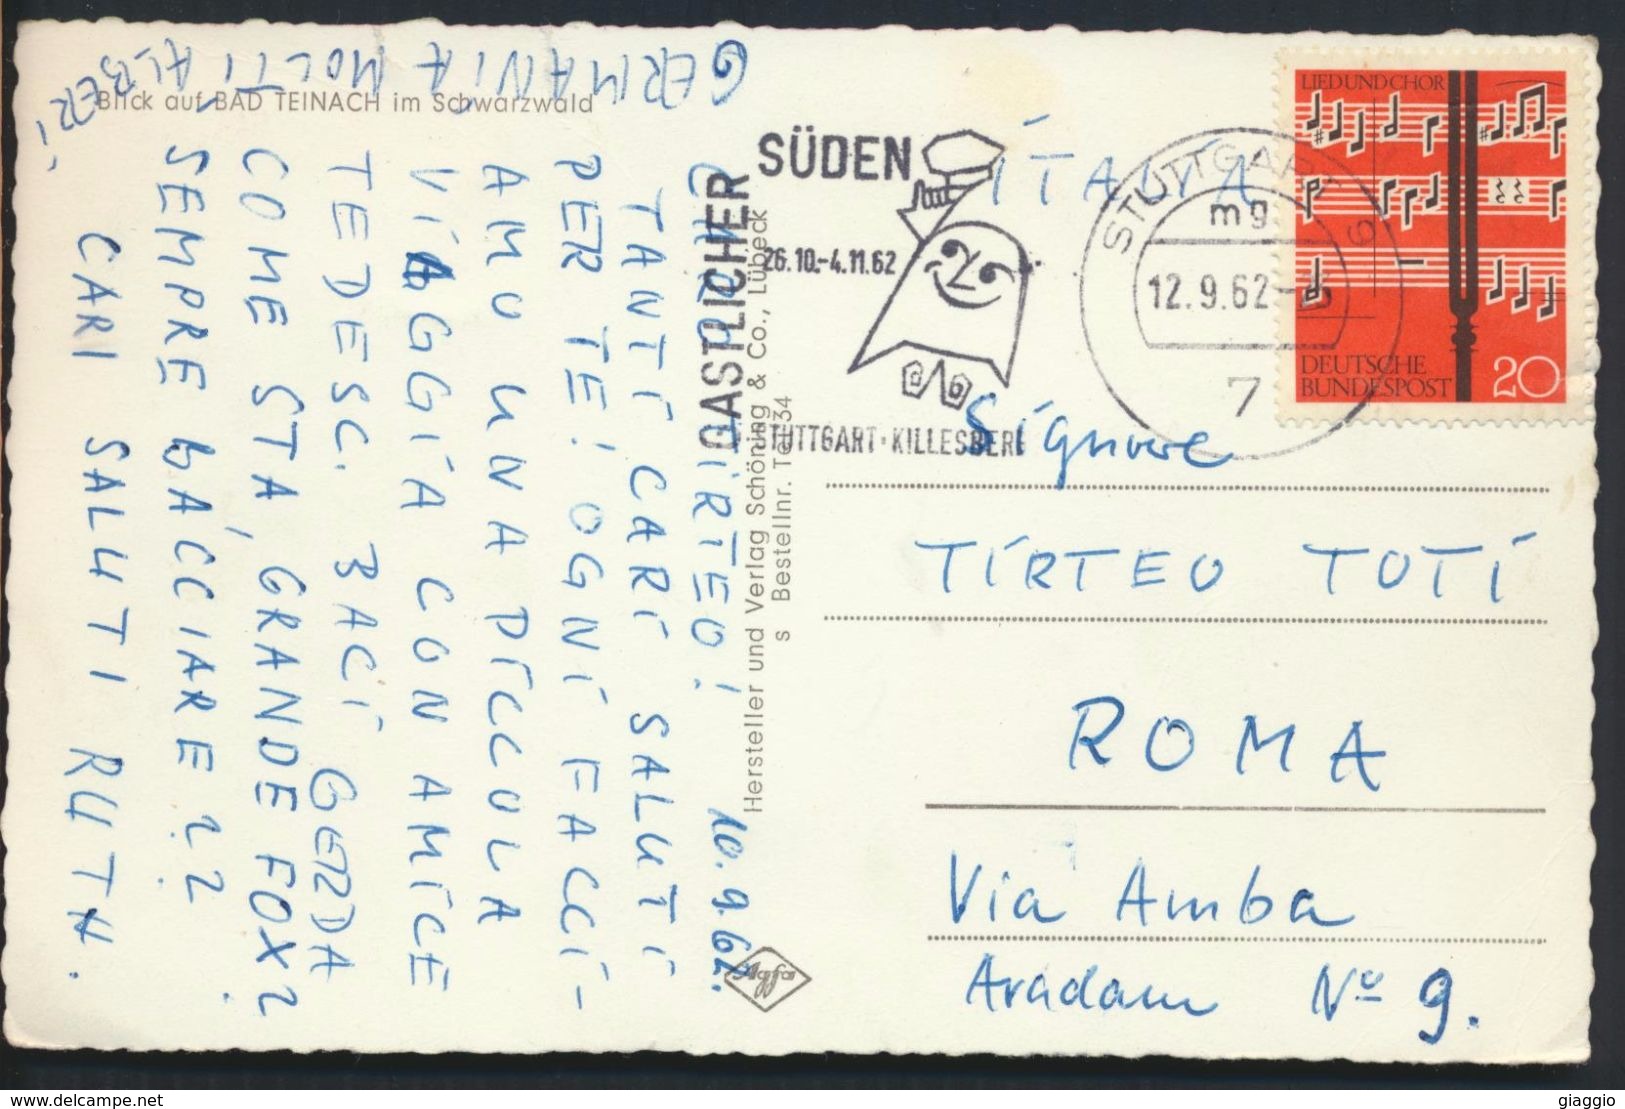 Blick auf BAD TEINACH im Schwarzwald
10.9.62.
CARO TIRTEO!
TANTI CARI SALUTI
PER TE! OGNI FACCI-
AMO UNA PICCOLA
VIAGGIA CON AMICE
TEDESC. BACI GERDA
COME STA, GRANDE FOX?
SEMPRE BACCIARE??
CARI SALUTI RUTH.
GERMANIA MOLTI ALBERI,
Hersteller und Verlag Schöning & Co., Lübeck
s Bestellnr. Te 34
GASTLICHER
SÜDEN
26.10.-4.11.62
STUTTGART-KILLESBERG
STUTTGART 9
mg
12.9.62
7
LIED UND CHOR
DEUTSCHE
BUNDESPOST 20
ITALIA
Signore
TIRTEO TOTI
ROMA
Via Amba
Aradam No 9.
Agfa
delcampe.net
giaggio